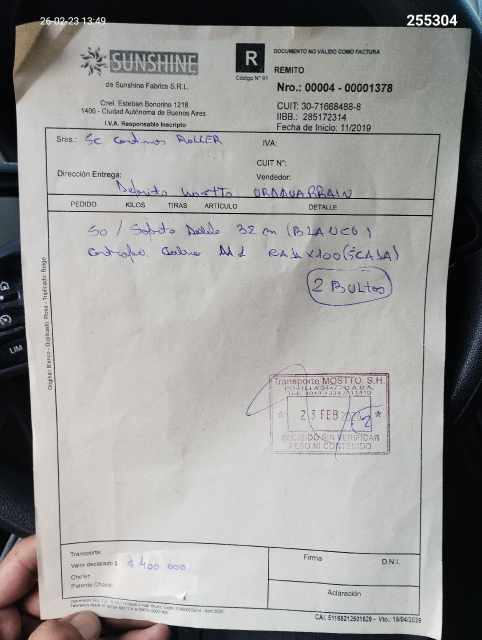 26-02-23 13:49
255304
SUNSHINE
de Sunshine Fabrics S.R.L.
Cnel. Esteban Bonorino 1218
1406 - Ciudad Autónoma de Buenos Aires
I.V.A. Responsable Inscripto
R
Código N° 91
DOCUMENTO NO VÁLIDO COMO FACTURA
REMITO
Nro.: 00004 - 00001378
CUIT: 30-71668488-8
IIBB.: 285172314
Fecha de Inicio: 11/2019
Sres.: SC Cortinas ROLLER
IVA:
CUIT N°:
Dirección Entrega:
Vendedor:
Deposito Mostto
PEDIDO KILOS TIRAS ARTÍCULO DETALLE
50 / Soporte Doble 32 m (BLANCO)
2 Bultos
Transporte MOSTTO. S.H.
23 FEB
RECIBIDO SIN VERIFICAR
PESO NI CONTENIDO
Original: Blanco - Duplicado: Rosa - Triplicado: Beige
Transporte:
Valor declarado $ 400.000
Chofer:
Patente Chasis:
Firma
D.N.I.
Aclaración
CAI. 51168212531629 - Vto.: 16/04/2026
LIM